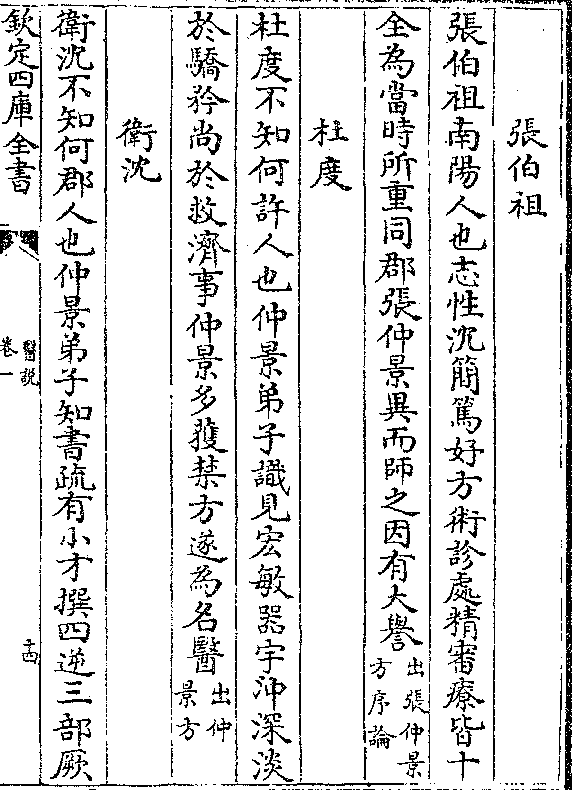 張伯祖
張伯祖南陽人也志性沈簡篤好方術診處精審療皆十
全為當時所重同郡張仲景異而師之因有大譽出張仲景
方序論
杜度
杜度不知何許人也仲景弟子識見宏敏器宇沖深淡
於驕矜尚於救濟事仲景多獲禁方遂為名醫出仲
景方
衛沈
衛沈不知何郡人也仲景弟子知書疏有小才撰四逆三部厥
欽定四庫全書
醫説
卷一
十四